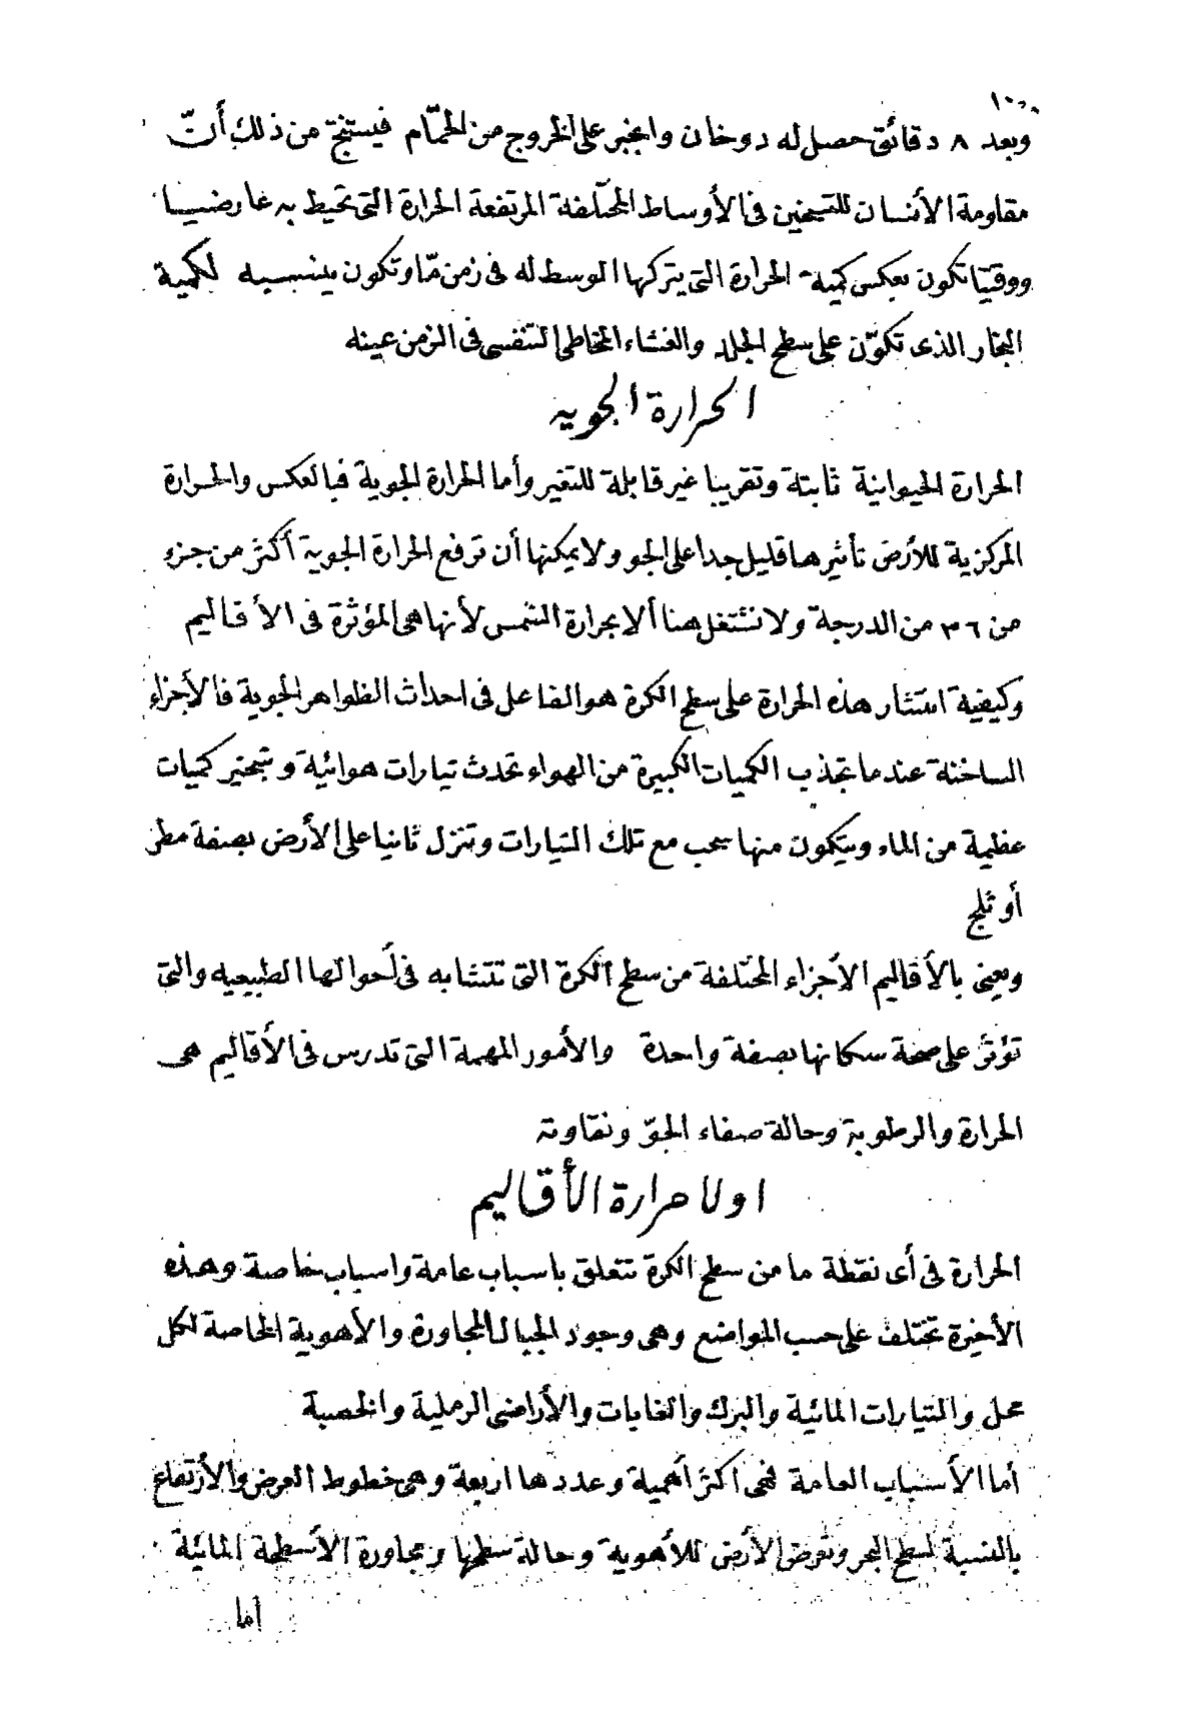 ١٠٠
وبعد ٨ دقائق حصل له دوخان وانجبر على الخروج من الحمّام فيستنتج من ذلك أنّ
مقاومة الأنسان للتسخين فى الأوساط المختلفة المرتفعة الحرارة التى تحيط به عارضيا
ووقتيا تكون بعكس كمية الحرارة التى يتركها الوسط له فى زمن مّا وتكون بنسبه لكمية
البخار الذى تكوّن على سطح الجلد والغشاء المخاطى التنفسى فى الزمن عينه
الحرارة الجويه
الحرارة الحيوانية ثابتة وتقريبا غير قابلة للتغير وأما الحرارة الجوية فبالعكس والحرارة
المركزية للأرض تأثيرها قليل جدا على الجو ولا يمكنها أن ترفع الحرارة الجوية أكثر من جزء
من ٣٦ من الدرجة ولا نشتغل هنا ألا بحرارة الشمس لأنها هى المؤثرة فى الأقاليم
وكيفية انتشار هذه الحرارة على سطح الكرة هو الفاعل فى احداث الظواهر الجوية فالأجزاء
الساخنة عندما تجذب الكميات الكبيرة من الهواء تحدث تيارات هوائية وتبخير كميات
عظيمة من الماء ويتكون منها سحب مع تلك التيارات وتنزل ثانيا على الأرض بصفة مطر
أو ثلج
ويعنى بالأقاليم الأجزاء المختلفة من سطح الكرة التى تتشابه فى أحوالها الطبيعيه والتى
تؤثر على صحة سكانها بصفة واحدة والأمور المهمة التى تدرس فى الأقاليم هى
الحرارة والرطوبة وحالة صفاء الجوّ ونقاوته
اولا حرارة الأقاليم
الحرارة فى أى نقطة ما من سطح الكرة تتعلق باسباب عامة واسباب خاصة وهذه
الأخيرة تختلف على حسب المواضع وهى وجود الجبال المجاورة والأهوية الخاصة لكل
محل والتيارات المائية والبرك والغابات والأراضى الرملية والخصبة
أما الأسباب العامة فهى اكثر أهمية وعددها اربعة وهى خطوط العرض والأرتفاع
بالنسبة لسطح البحر وتعرض الأرض للأهوية وحالة سطحها ومجاورة الأسطحة المائية
أما